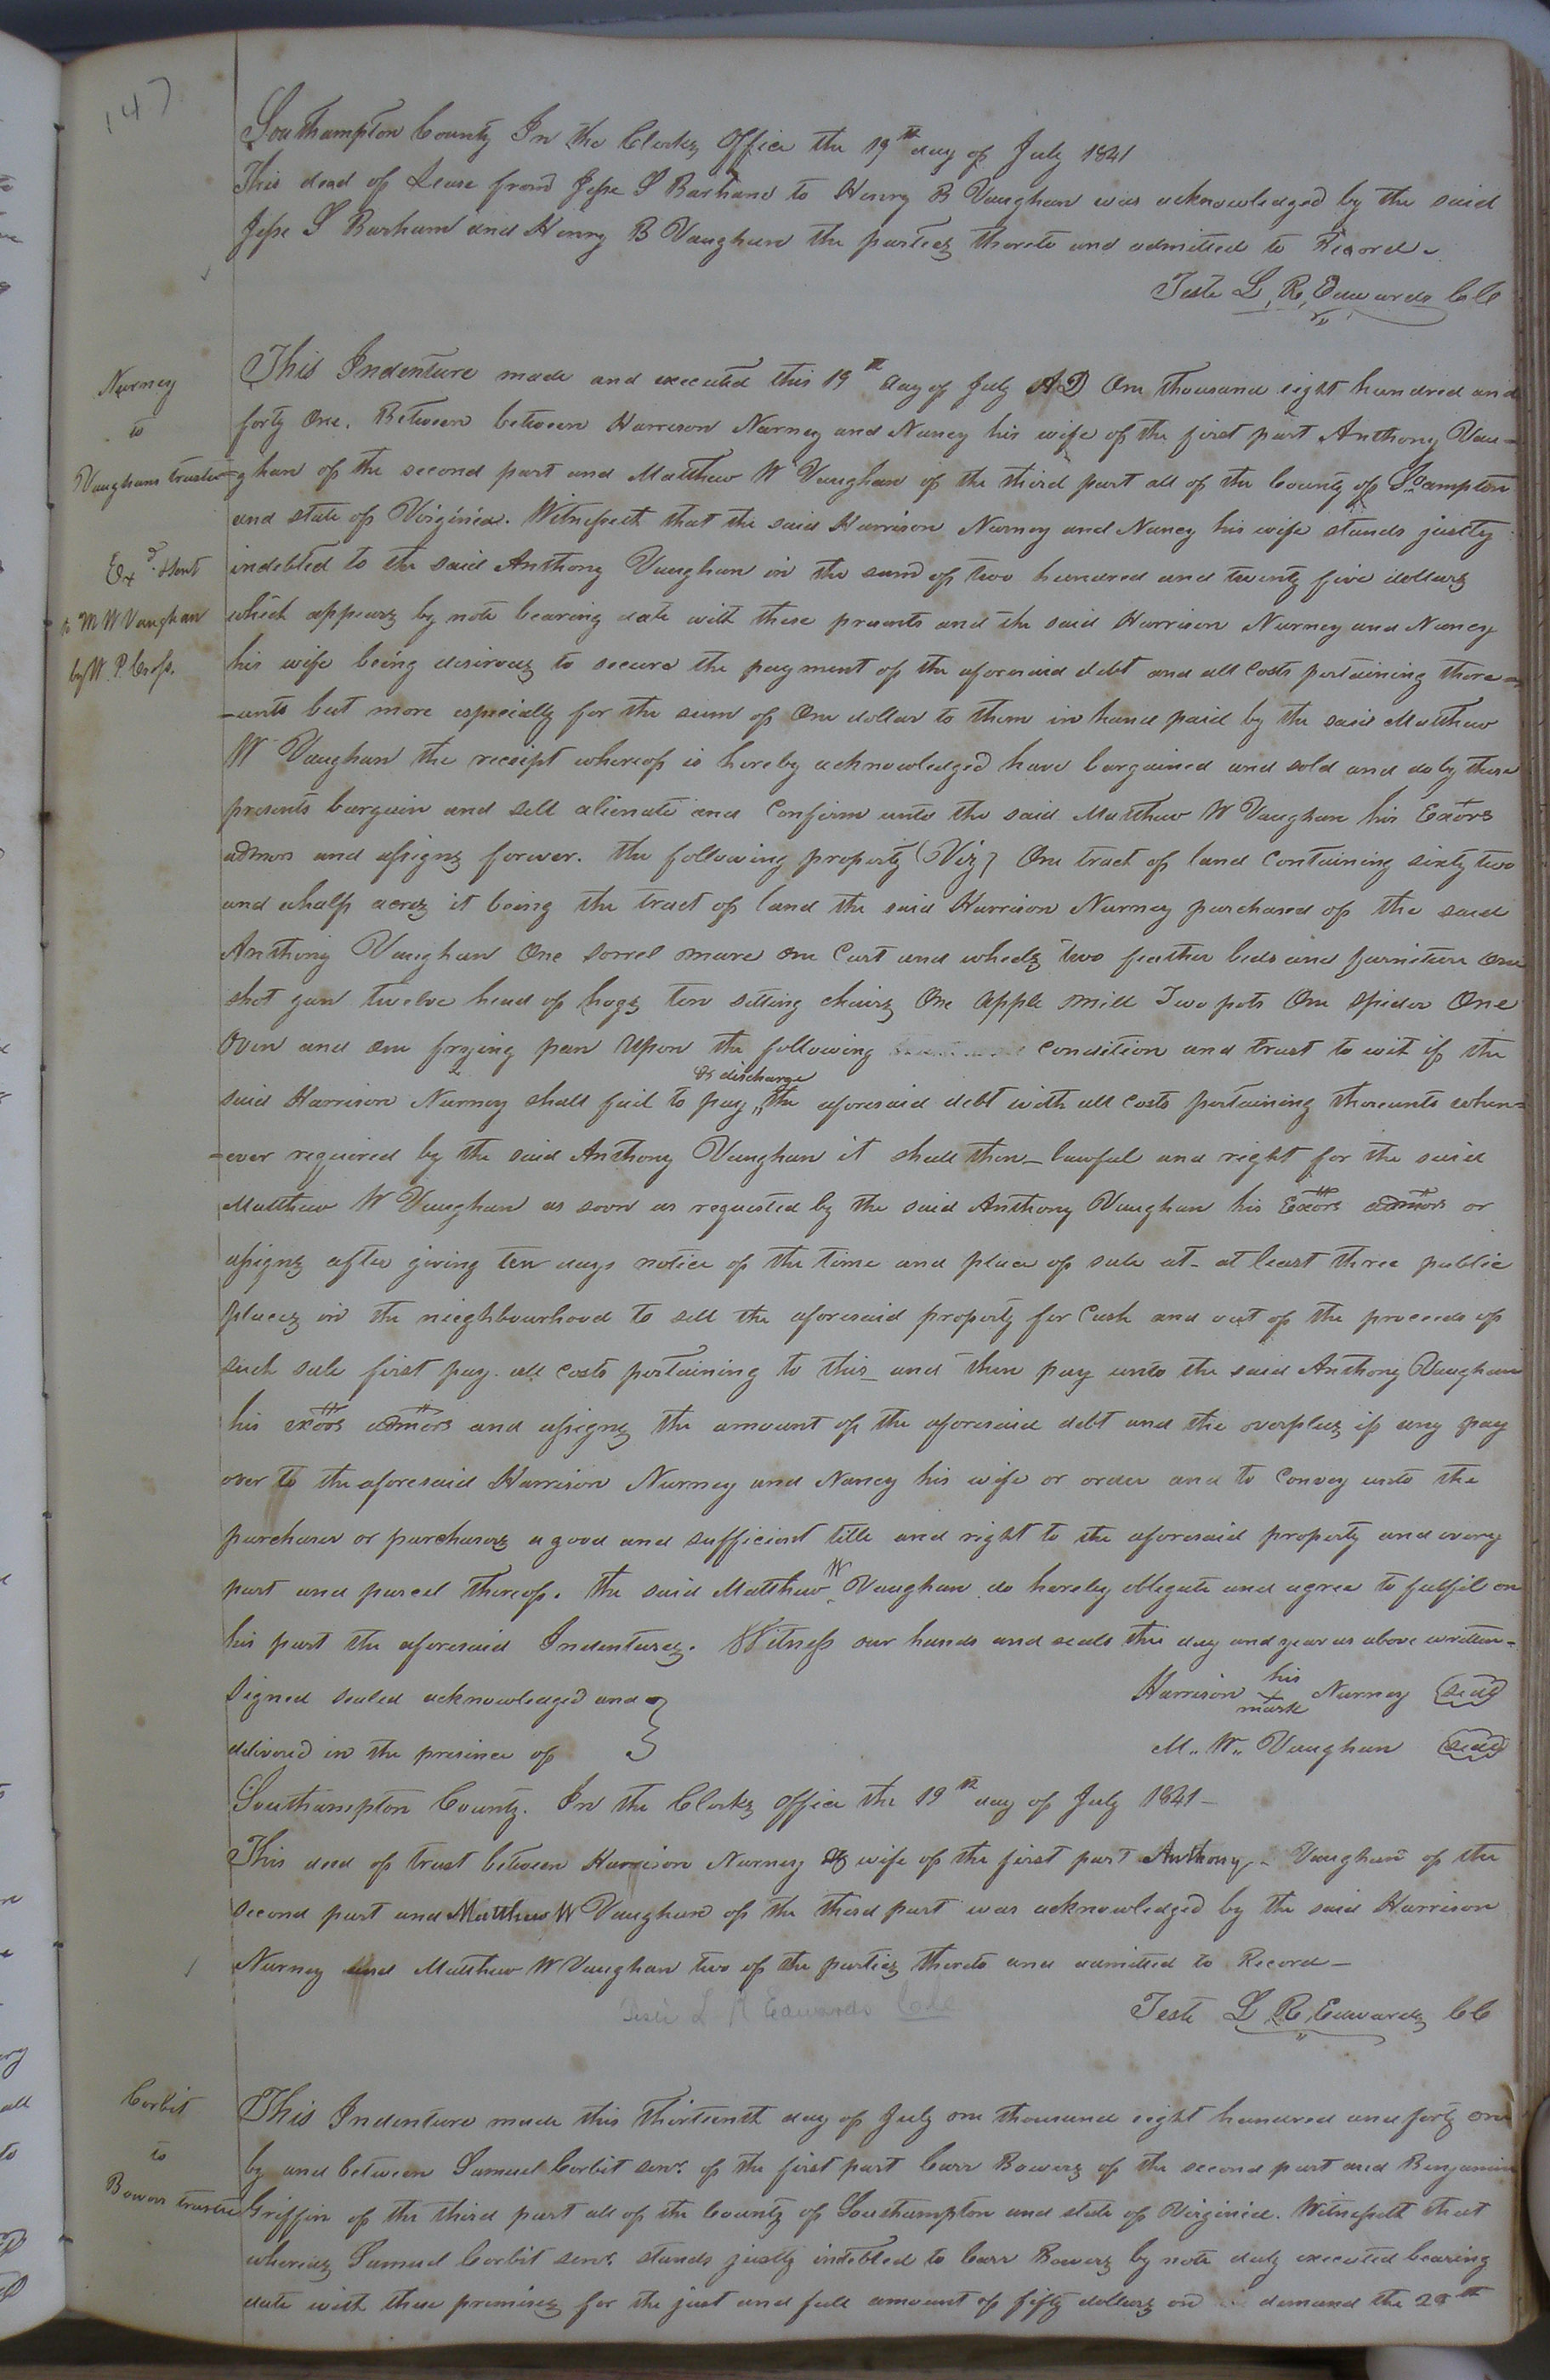 147
Southampton County In the Clerks Office the 19th day of July 1841
This deed of Lease from Jesse S Barham to Henry B Vaughan was acknowledged by the said
Jesse S Barham and Henry B Vaughan the parties thereto and admitted to Record.
Teste L. R. Edwards CC
Nurney
to
Vaughans trustee
Exd. & sent
to M W Vaughan
by W. P. Cross.
This Indenture made and executed this 19th day of July AD One thousand eight hundred and
forty One. Between between Harrison Nurney and Nancy his wife of the first part Anthony Vau=
=ghan of the second part and Matthew W Vaughan of the third part all of the County of Soampton
and state of Virginia. Witnesseth that the said Harrison Nurney and Nancy his wife stands justly
indebted to the said Anthony Vaughan in the sum of two hundred and twenty five dollars
which appears by note bearing date with these presents and the said Harrison Nurney and Nancy
his wife being desirous to secure the payment of the aforesaid debt and all Costs pertaining there=
=unto but more especially for the sum of One dollar to them in hand paid by the said Matthew
W Vaughan the receipt whereof is hereby acknowledged have bargained and sold and do by these
presents bargain and sell alienate and Confirm unto the said Matthew W Vaughan his Exors
admors and assigns forever. the following property (Viz) One tract of land Containing sixty two
and ahalf acres it being the tract of land the said Harrison Nurney purchased of the said
Anthony Vaughan One sorrel mare one Cart and wheels two feather beds and furniture One
shot gun twelve head of hogs ten setting chairs One Apple mill Two pots One spider One
Oven and one frying pan Upon the following condition and trust to wit if the
said Harrison Nurney shall fail to pay & discharge the aforesaid debt with all Costs pertaining thereunto when=
=ever required by the said Anthony Vaughan it shall then_ lawful and right for the said
Matthew W Vaughan as soon as requested by the said Anthony Vaughan his Exors admors or
assigns after giving ten days notice of the time and place of sale at_ at least three public
places in the nieghbourhood to sell the aforesaid property for Cash and out of the proceeds of
such sale first pay all Costs pertaining to this_ and then pay unto the said Anthony Vaughan
his exors admors and assigns the amount of the aforesaid debt and the overplus if any pay
over to the aforesaid Harrison Nurney and Nancy his wife or order and to Convey unto the
purchaser or purchasers a good and sufficient title and right to the aforesaid property and every
part and parcel thereof. the said Matthew W Vaughan do hereby obligate and agree to fulfil on
his part the aforesaid Indentures. Witness our hands and seals the day and year as above written-
Signed sealed acknowledged and
delivered in the presince of
Harrison his X mark Nurney seal
M.. W.. Vaughan seal
Southampton County. In the Clerks office the 19th day of July 1841-
This deed of trust between Harrison Nurney & wife of the first part Anthony_ Vaughan of the
second part and Matthew W Vaughan of the third part was acknowledged by the said Harrison
Nurney and Matthew W Vaughan two of the parties thereto and admitted to Record-
Teste L R Edwards CC
Teste L R Edwards CC
Corbit
to
Bowers trustee
This Indenture made this thirteenth day of July one thousand eight hundred and forty one
by and between Samuel Corbit senr. of the first part Carr Bowers of the second part and Benjamin
Griffin of the third part all of the County of Southampton and state of Virginia. Witnesseth that
whereas Samuel Corbit senr. stands justly indebted to Carr Bowers by note duly executed bearing
date with these premises for the just and full amount of fifty dollars on demand the 28th